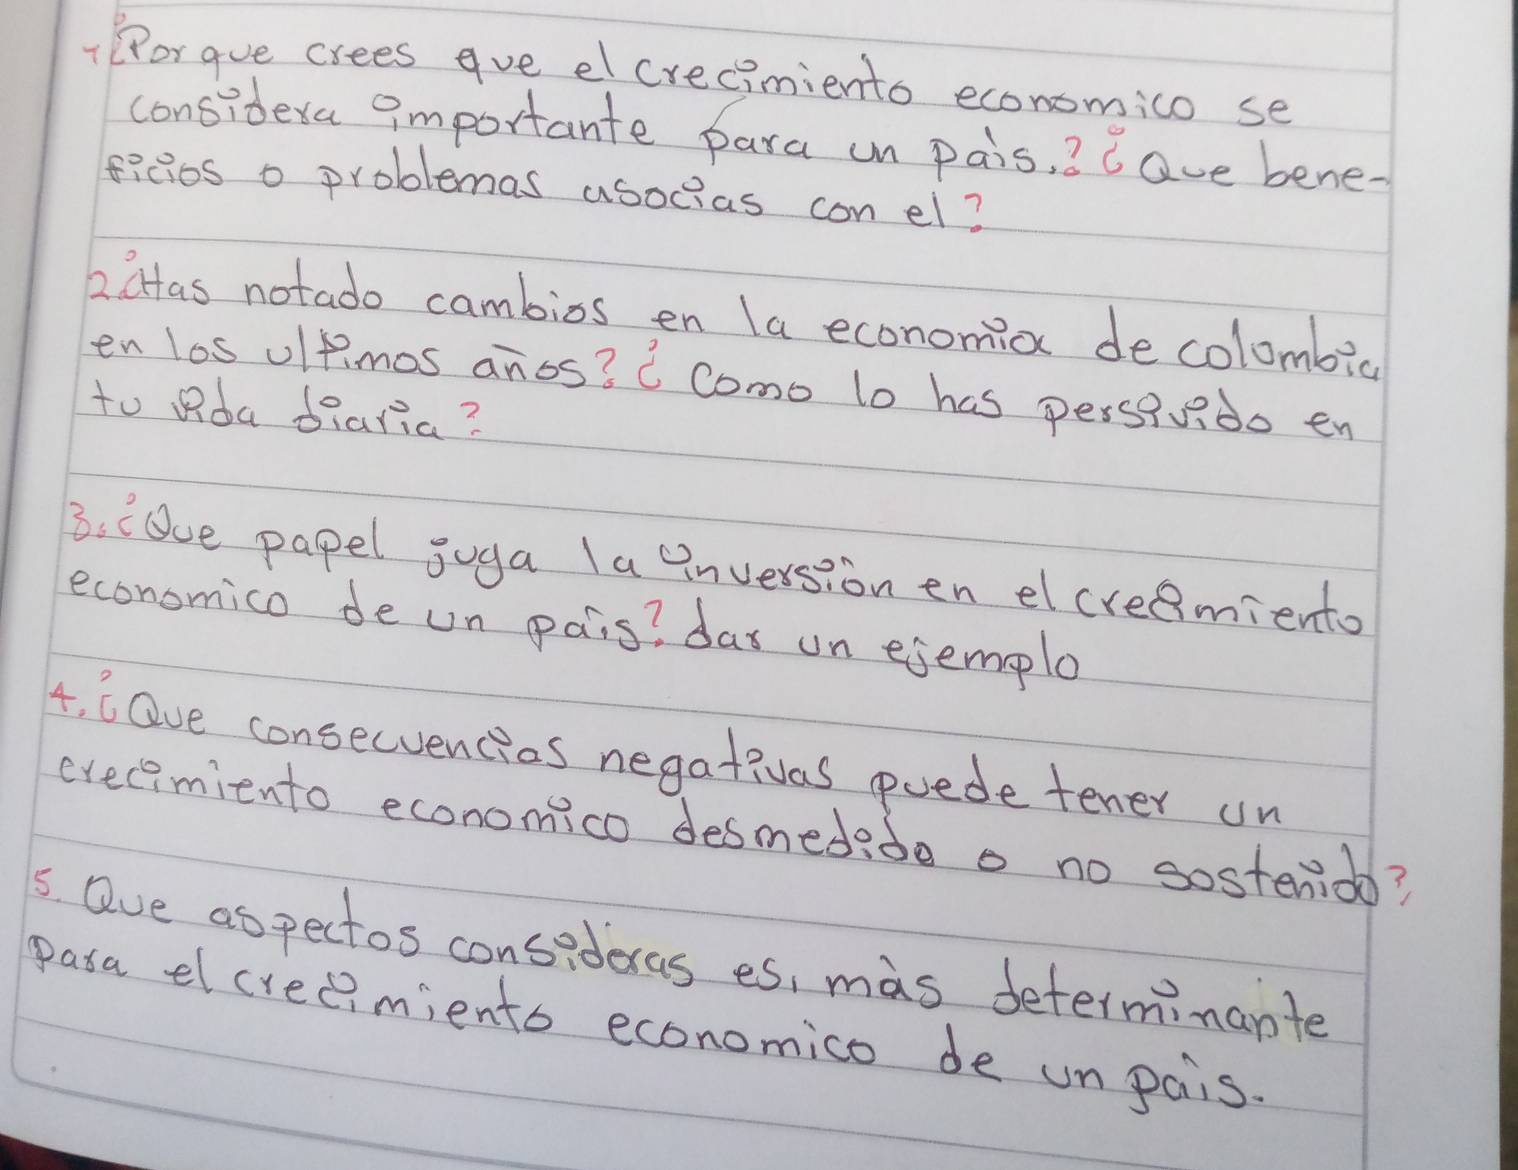 1¿Por que crees que el crecimiento economico se
considera importante para un pais.? ¿Que bene-
ficios o problemas asocias con el?
2¿Has notado cambios en la economia de colombia
en los ultimos años? ¿como lo has persivido en
tu vida diaria?
3.¿Que papel juga la inversiòn en el crecimiento
economico de un pais? dar un ejemplo
4.¿Que consecuencias negativas puede tener un
crecimiento economico desmedido o no sostenido?
5. Que aspectos consideras es, màs determinante
para el crecimiento economico de un pais.